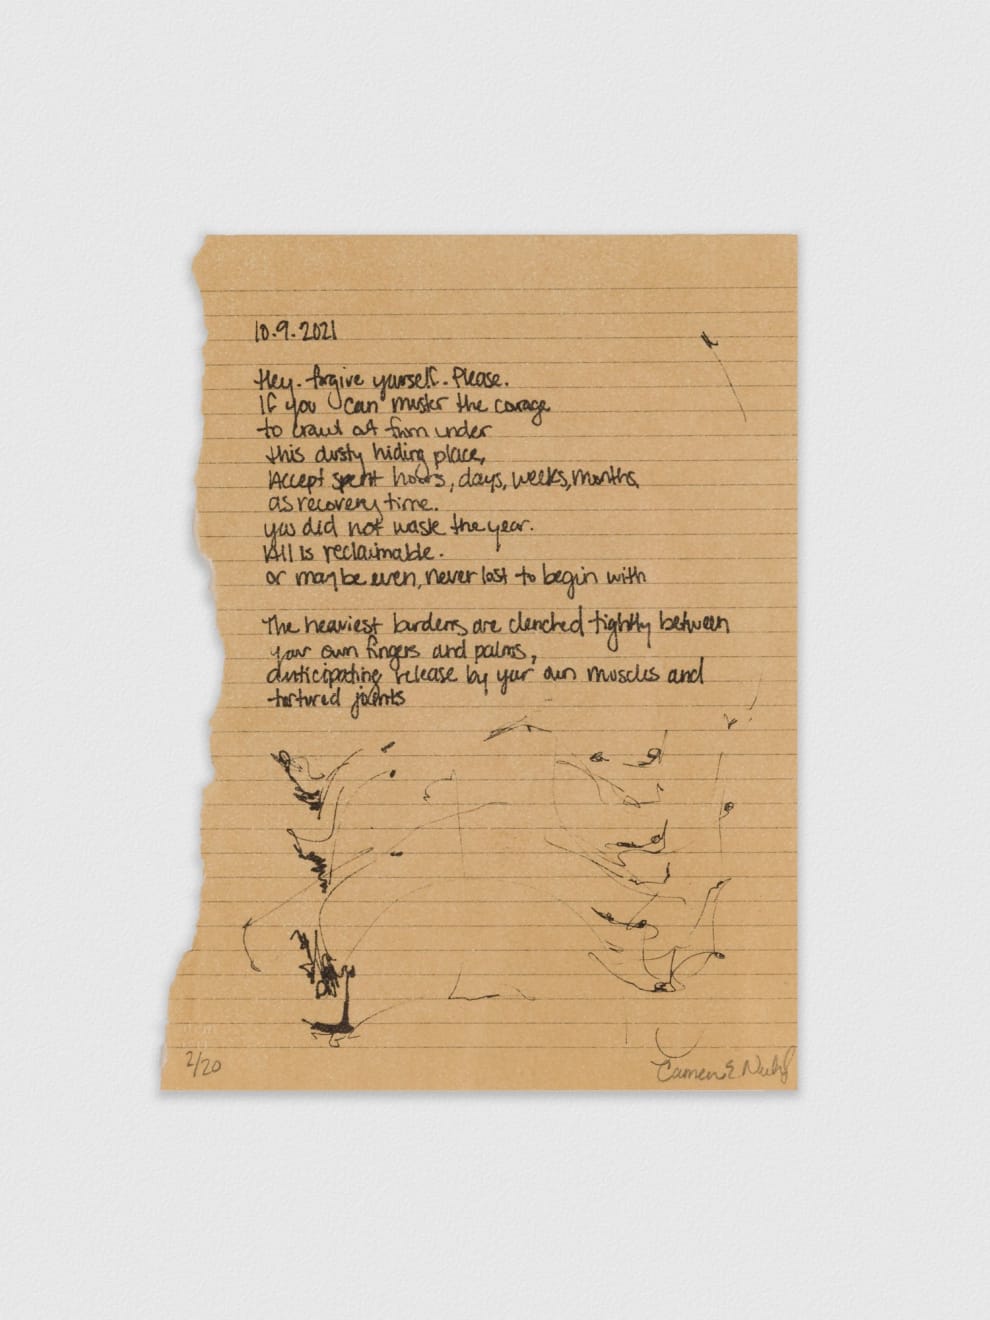 10.9.2021
Hey. forgive yourself. Please.
If you can muster the courage
to crawl out from under
this dusty hiding place,
Accept spent hours, days, weeks, months
as recovery time.
you did not waste the year.
All is reclaimable.
or maybe even, never lost to begin with
The heaviest burdens are clenched tightly between
your own fingers and palms,
anticipating release by your own muscles and
tortured joints
2/20